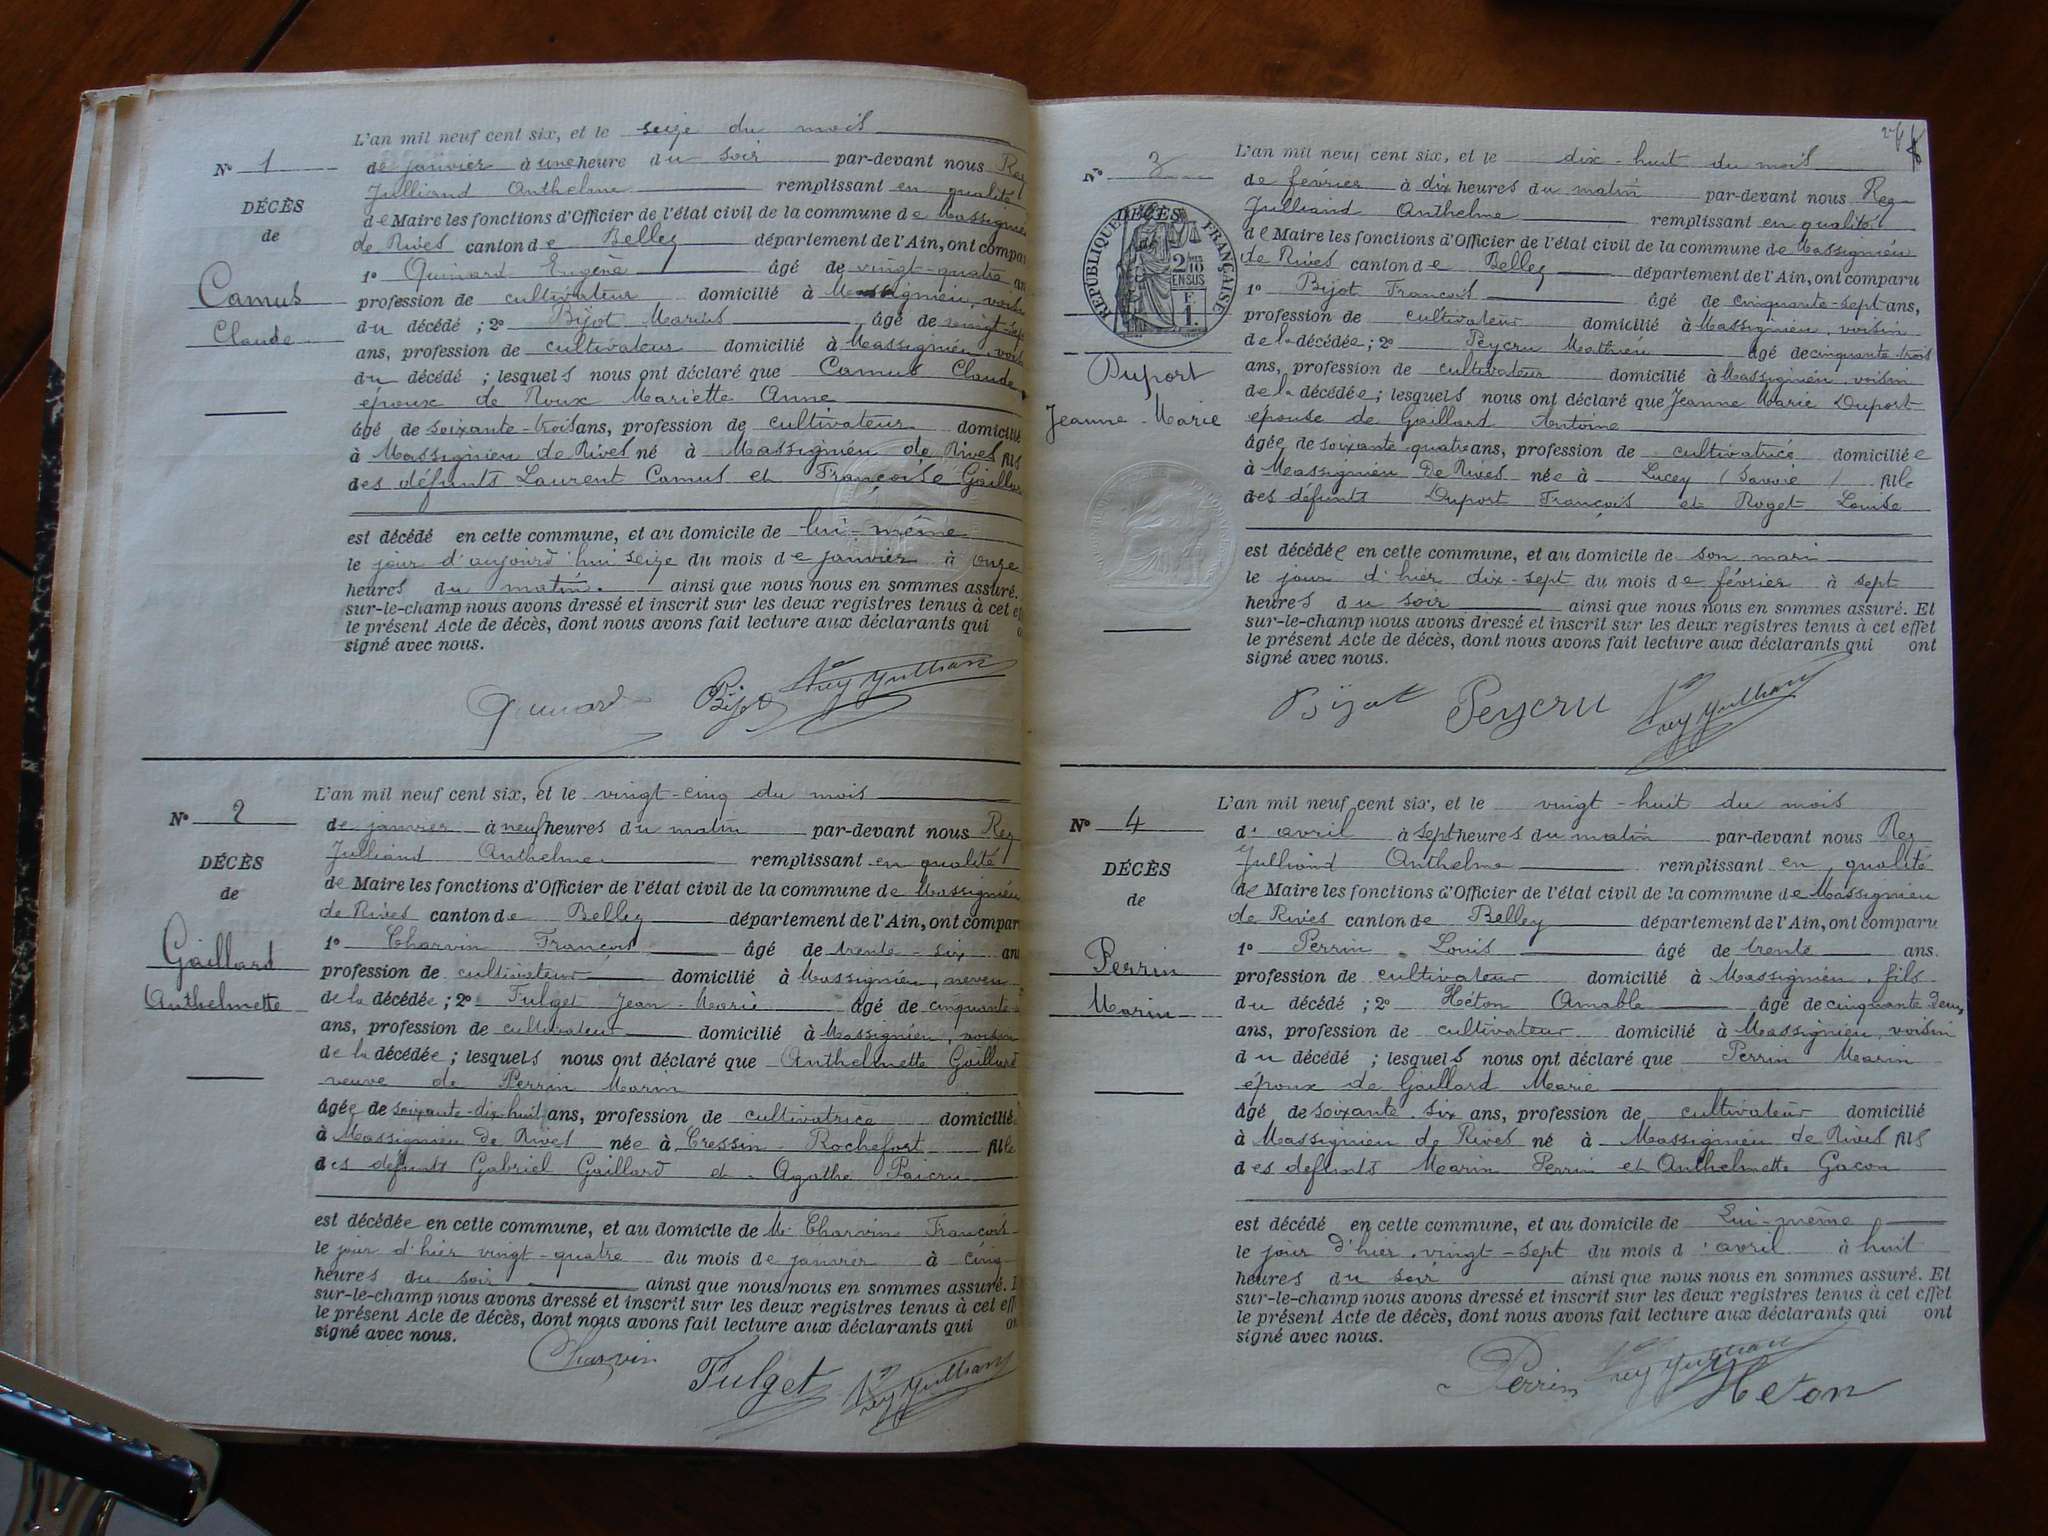 L'an mil neuf cent six, et le seize du mois
N° 1
de janvier à une heure du soir par-devant nous Rey
Julliand Anthelme remplissant en qualité
DÉCÈS
de Maire les fonctions d'Officier de l'état civil de la commune de Massignieu
de
de Rives canton de Belley département de l'Ain, ont compar
1° Quinard Eugène âgé de vingt-quatre an
Camus
profession de cultivateur domicilié à Massignieu, voisin
Claude
du décédé ; 2° Bijot Marius âgé de vingt-sept
ans, profession de cultivateur domicilié à Massignieu, voisin
du décédé ; lesquels nous ont déclaré que Camus Claude
époux de Roux Mariette Anne
âgé de soixante-trois ans, profession de cultivateur domicilié
à Massignieu de Rives né à Massignieu de Rives fils
des défunts Laurent Camus et Françoise Gaillard
est décédé en cette commune, et au domicile de lui-même
le jour d'aujourd'hui seize du mois de janvier à onze
heures du matin. ainsi que nous nous en sommes assuré.
sur-le-champ nous avons dressé et inscrit sur les deux registres tenus à cet ef
le présent Acte de décès, dont nous avons fait lecture aux déclarants qui o
signé avec nous.
Quinard Bijot Rey Julliand
L'an mil neuf cent six, et le vingt-cinq du mois
N° 2
de janvier à neuf heures du matin par-devant nous Rey
Julliand Anthelme remplissant en qualité
DÉCÈS
de Maire les fonctions d'Officier de l'état civil de la commune de Massignieu
de
de Rives canton de Belley département de l'Ain, ont compar
Gaillard
1° Charvin François âgé de trente-six an
profession de cultivateur domicilié à Massignieu, neveu
Anthelmette
de la décédée ; 2° Fulget Jean-Marie âgé de cinquante
ans, profession de cultivateur domicilié à Massignieu, voisin
de la décédée ; lesquels nous ont déclaré que Anthelmette Gaillard
veuve de Perrin Marin
âgée de soixante-dix-huit ans, profession de cultivatrice domicilié
à Massignieu de Rives née à Cressin-Rochefort fille
des défunts Gabriel Gaillard et Agathe Paicru
est décédée en cette commune, et au domicile de M. Charvin François
le jour d'hier vingt-quatre du mois de janvier à cinq
heures du soir ainsi que nous nous en sommes assuré. E
sur-le-champ nous avons dressé et inscrit sur les deux registres tenus à cet eff
le présent Acte de décès, dont nous avons fait lecture aux déclarants qui on
signé avec nous.
Charvin Fulget Rey Julliand
L'an mil neuf cent six, et le dix-huit du mois
N° 3
de février à dix heures du matin par-devant nous Rey
Julliand Anthelme remplissant en qualité
DÉCÈS
de
RÉPUBLIQUE FRANÇAISE
2/10 EN SUS
F. 1.
de Maire les fonctions d'Officier de l'état civil de la commune de Massignieu
de Rives canton de Belley département de l'Ain, ont comparu
1° Bijot François âgé de cinquante-sept ans,
profession de cultivateur domicilié à Massignieu, voisin
de la décédée ; 2° Peycru Mathieu âgé de cinquante trois
Duport
ans, profession de cultivateur domicilié à Massignieu, voisin
de la décédée ; lesquels nous ont déclaré que Jeanne Marie Duport
Jeanne-Marie
épouse de Gaillard Antoine
âgée de soixante quatre ans, profession de cultivatrice domiciliée
à Massignieu de Rives née à Lucey (Savoie) fille
des défunts Duport François et Roget Louise
est décédée en cette commune, et au domicile de son mari
le jour d'hier dix-sept du mois de février à sept
heures du soir ainsi que nous nous en sommes assuré. Et
sur-le-champ nous avons dressé et inscrit sur les deux registres tenus à cet effet
le présent Acte de décès, dont nous avons fait lecture aux déclarants qui ont
signé avec nous.
Bijot Peycru Rey Julliand
L'an mil neuf cent six, et le vingt-huit du mois
N° 4
d'avril à sept heures du matin par-devant nous Rey
Julliand Anthelme remplissant en qualité
DÉCÈS
de Maire les fonctions d'Officier de l'état civil de la commune de Massignieu
de
de Rives canton de Belley département de l'Ain, ont comparu
1° Perrin Louis âgé de trente ans.
Perrin
profession de cultivateur domicilié à Massignieu, fils
Marin
du décédé ; 2° Héton Amable âgé de cinquante deux
ans, profession de cultivateur domicilié à Massignieu, voisin
du décédé ; lesquels nous ont déclaré que Perrin Marin
époux de Gaillard Marie
âgé de soixante six ans, profession de cultivateur domicilié
à Massignieu de Rives né à Massignieu de Rives fils
des défunts Marin Perrin et Anthelmette Gacon
est décédé en cette commune, et au domicile de Lui-même
le jour d'hier, vingt-sept du mois d'avril à huit
heures du soir ainsi que nous nous en sommes assuré. Et
sur-le-champ nous avons dressé et inscrit sur les deux registres tenus à cet effet
le présent Acte de décès, dont nous avons fait lecture aux déclarants qui ont
signé avec nous.
Perrin Rey Julliand Heton